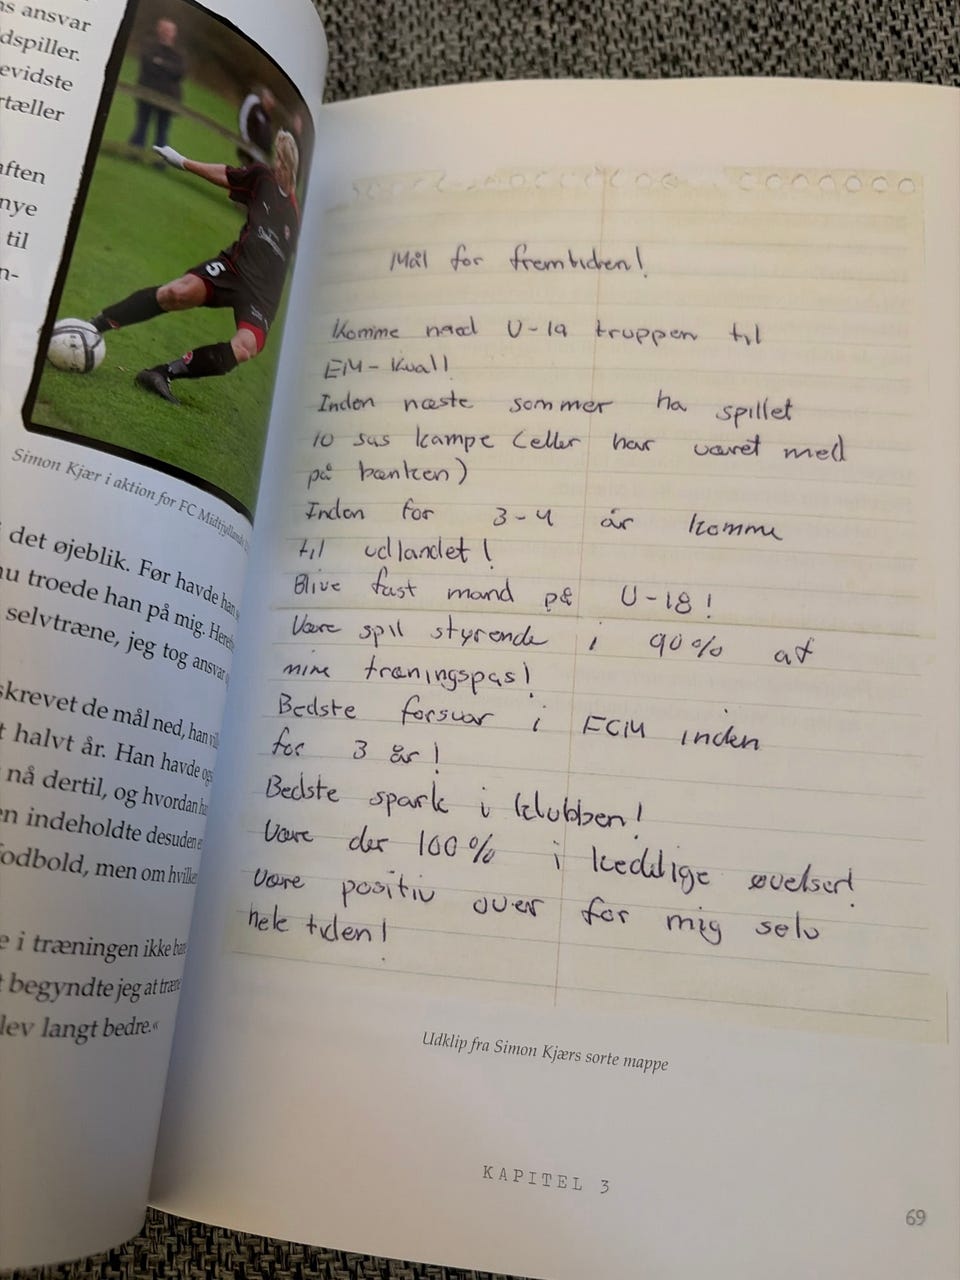 ns ansvar
dspiller.
evidste
rtæller
aften
nye
til
n-
5
Simon Kjær i aktion for FC Midtjyllands
i det øjeblik. Før havde han
nu troede han på mig.
selvtræne, jeg tog ansvar
skrevet de mål ned, han
t halvt år. Han havde
nå dertil, og hvordan
en indeholdte desuden
fodbold, men om
e i træningen ikke
t begyndte jeg at
lev langt bedre.“
Mål for fremtiden!
Komme med U-19 truppen til
EM-Kval!
Inden næste sommer ha spillet
10 sas kampe (eller har været med
på bænken)
Inden for 3-4 år komme
til udlandet!
Blive fast mand på U-18!
Være spil styrende i 90% af
mine træningspas!
Bedste forsvar i FCM inden
for 3 år!
Bedste spark i klubben!
Være der 100% i kedelige øvelser!
Være positiv over for mig selv
hele tiden!
Udklip fra Simon Kjærs sorte mappe
KAPITEL 3
69